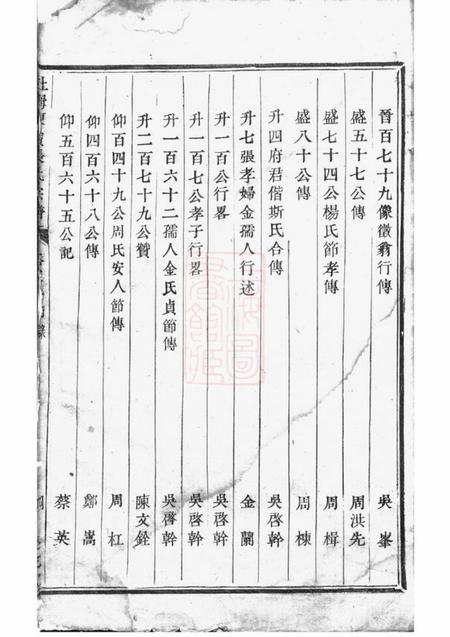 晉百七十九像徵翁行傳 吳峯
盛五十七公傳 周洪先
盛七十四公楊氏節孝傳 周楫
盛八十公傳 周棟
升四府君偕斯氏合傳 吳啓幹
升七張孝婦金孺人行述 金蘭
升一百公行畧 吳啓幹
升一百七公孝子行畧 吳啓幹
升一百六十二孺人金氏貞節傳 吳啓幹
升二百七十九公贊 陳文銓
仰百四十九公周氏安人節傳 周杠
仰四百六十八公傳 鄭嵩
仰五百六十五公記 蔡英